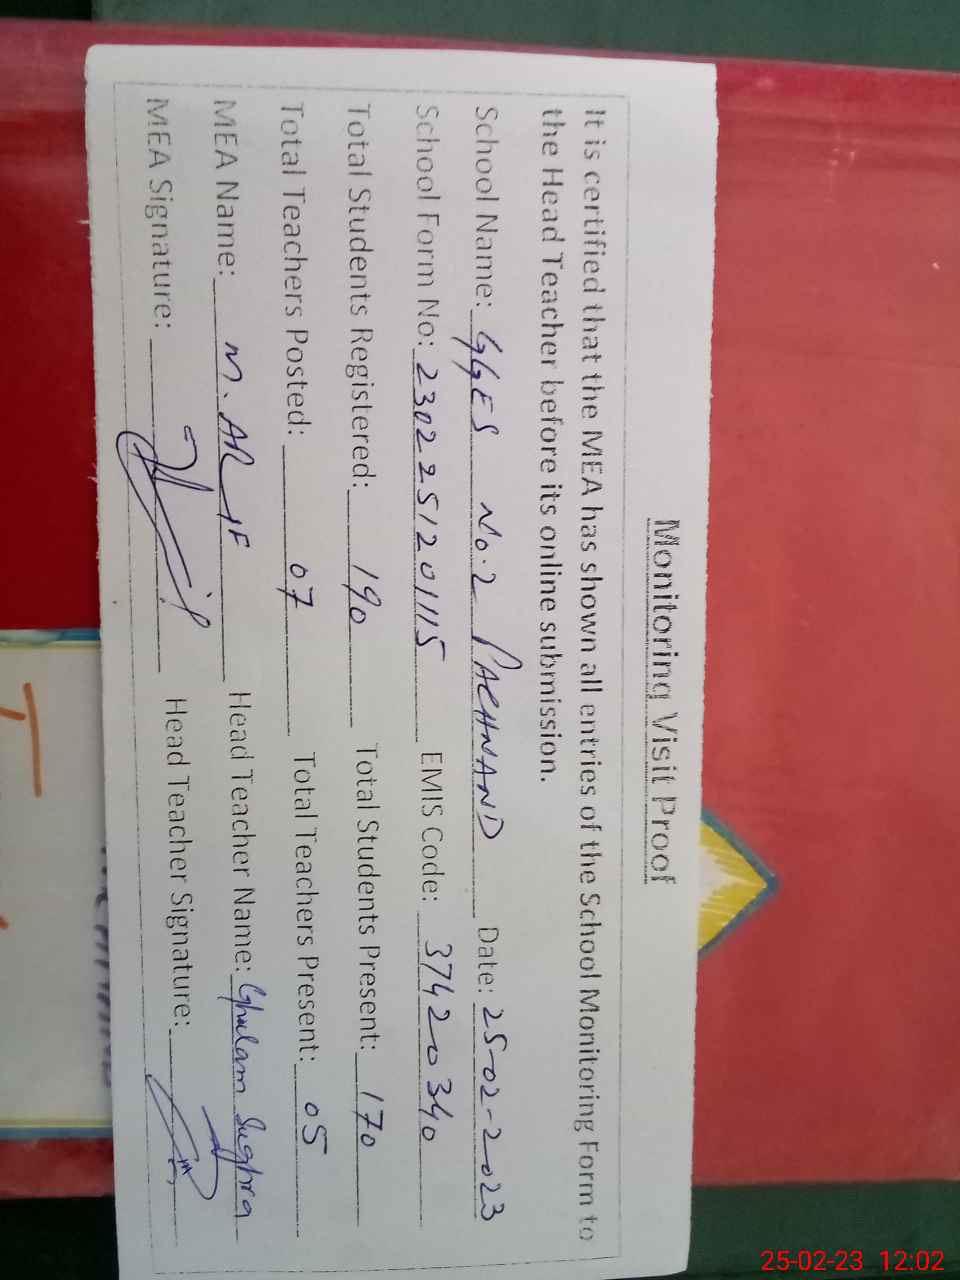 Monitoring Visit Proof
It is certified that the MEA has shown all entries of the School Monitoring Form to
the Head Teacher before its online submission.
School Name: GGES No.2 PACHNAND Date: 25-02-2023
School Form No: 2302251201115 EMIS Code: 37420340
Total Students Registered: 190 Total Students Present: 170
Total Teachers Posted: 07 Total Teachers Present: 05
MEA Name: M. ARIF Head Teacher Name: Ghulam Sughra
MEA Signature: Head Teacher Signature:
25-02-23 12:02